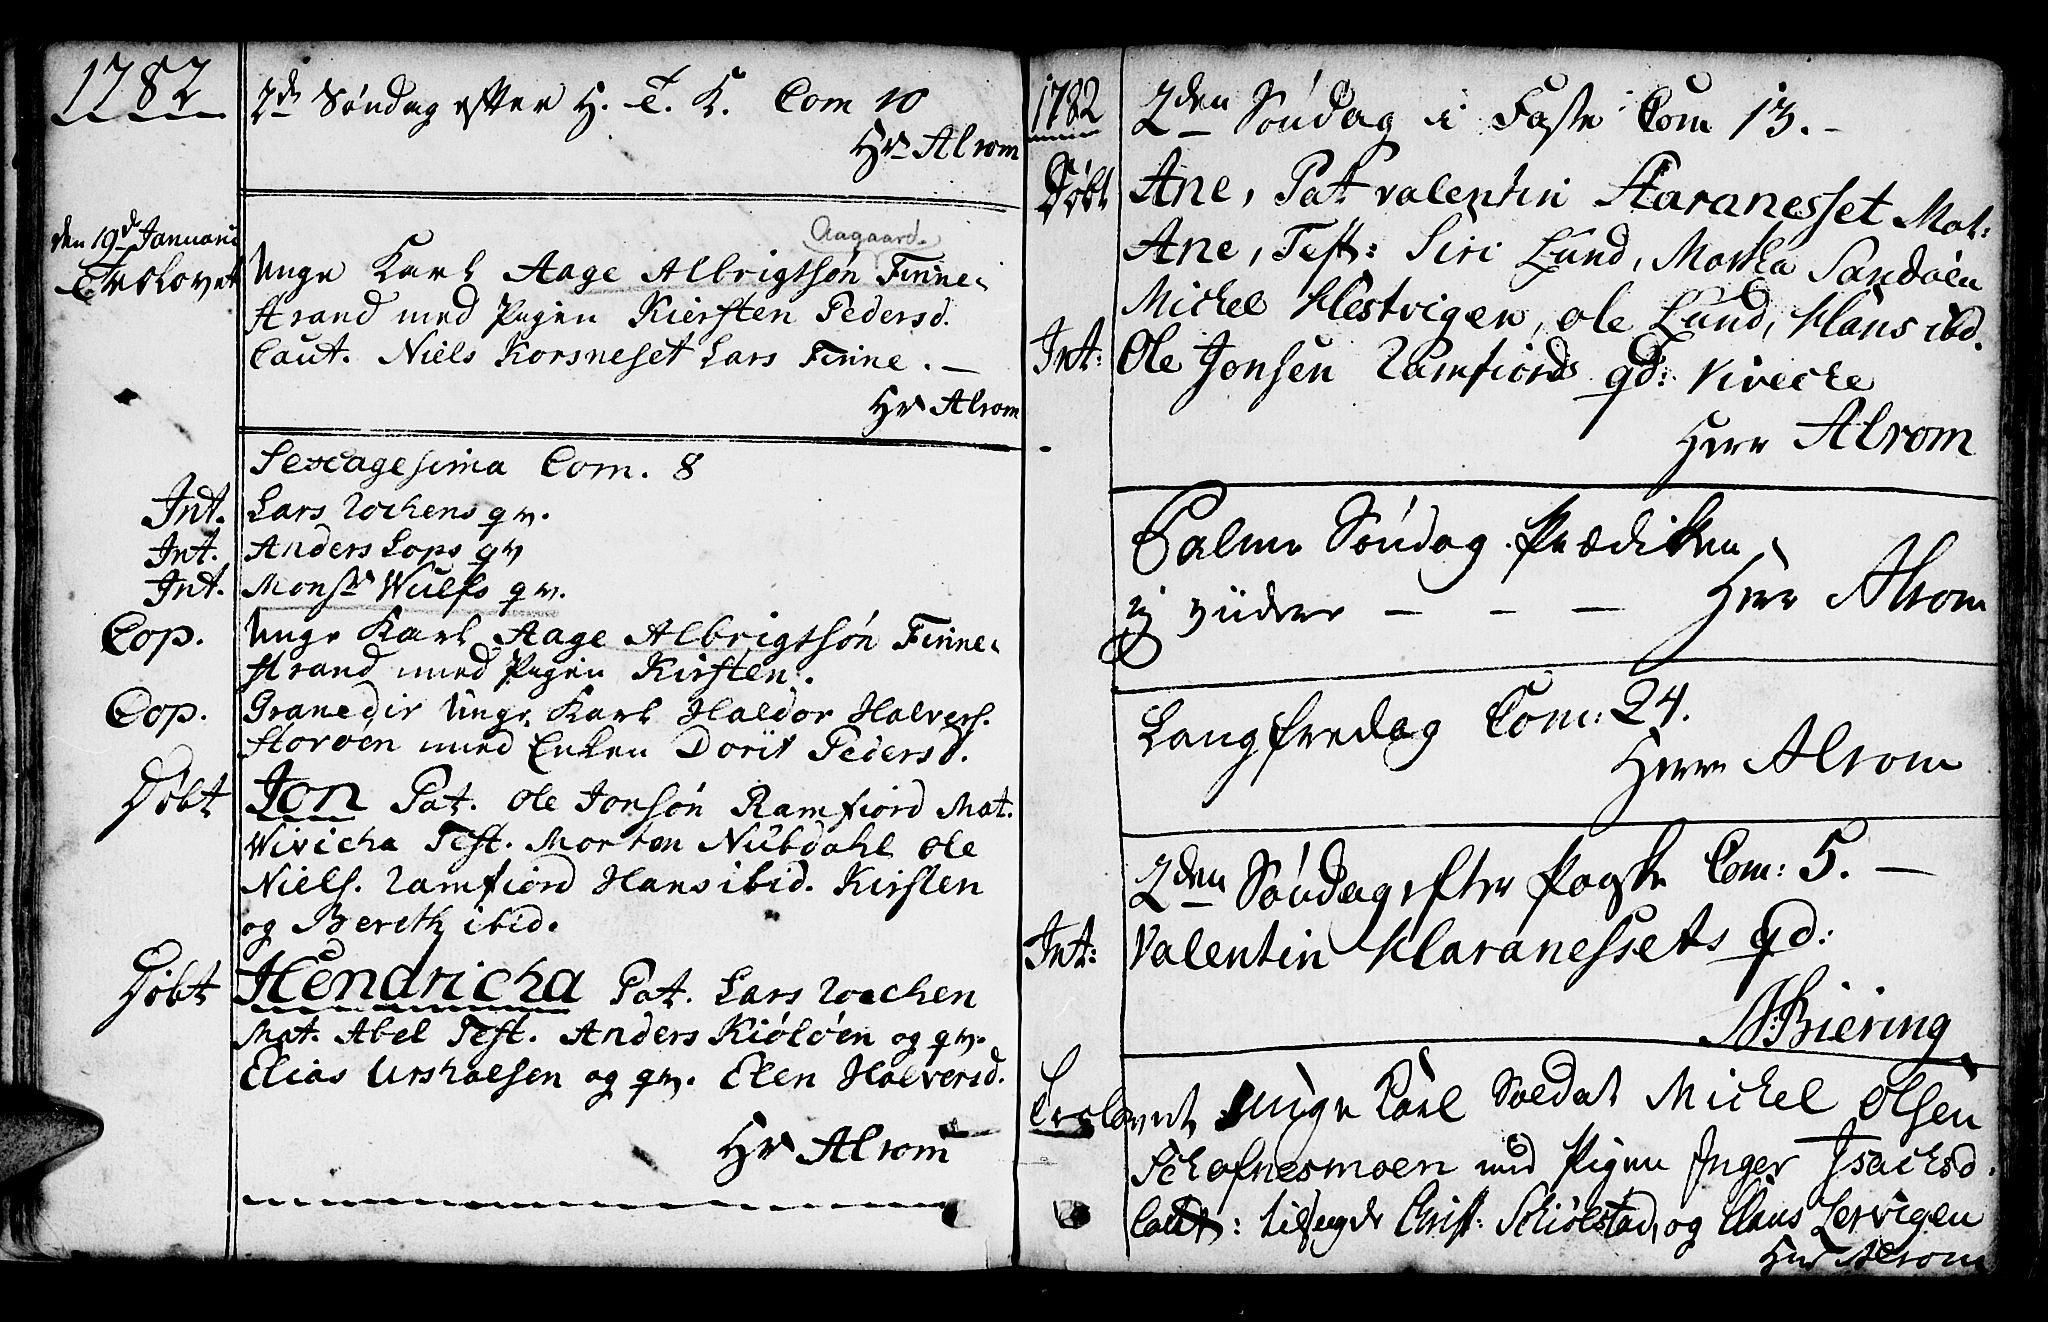 1782
2den Søndag efter H. T. K. Com 10
Hr Alrom
den 19de Januari
Trolovet
Aagaard
Unge Karl Aage Albrigtsøn Finne-
strand med Pigen Kiersten Pedersd.
Caut. Niels Korsneset Lars Finne. —
Hr Alrom
Sexagesima Com. 8
Int. Lars Rochens qv.
Int. Anders Lops qv
Int. Monsr Wulfs qv.
Cop. Unge Karl Aage Albrigtsøn Finne-
strand med Pigen Kirsten.
Cop. Granedir Unge Karl Haldor Halvers.
Storøen med Enken Dorit Pedersd.
Døbt Jon Pat. Ole Jonsøn Ramfiord Mat.
Wivicha Test. Morten Nubdahl Ole
Niels. Ramfiord Hans ibid. Kirsten
og Bereth ibid.
Døbt Hendricha Pat. Lars Rochen
Mat. Abel Test. Anders Kiøløen og qv.
Elias Urshalsen og qv. Elen Halversd.
Hr Alrom
1782
2den Søndag i Faste Com 13. —
Døbt Ane, Pat Valentin Klaranesset Mat:
Ane, Test: Siri Lund, Martha Sandøen
Michel Hestvigen, Ole Lund, Hans ibd.
Int: Ole Jonsen Ramfiords qd: Vivecke
Herr Alrom
Palme Søndag. Prædiken
ej videre — — — Herr Alrom
Langfredag Com: 24.
Herr Alrom
2den Søndag efter Paaske Com: 5. —
Int: Valentin Klaranessets qd:
N: Biering
Trolovet Unge Carl Soldat Michel Olsen
Schafnesmoen med Pigen Inger Isachsd.
Caut: Christ: Schiølstad, og Claus Lervigen
Herr Alrom